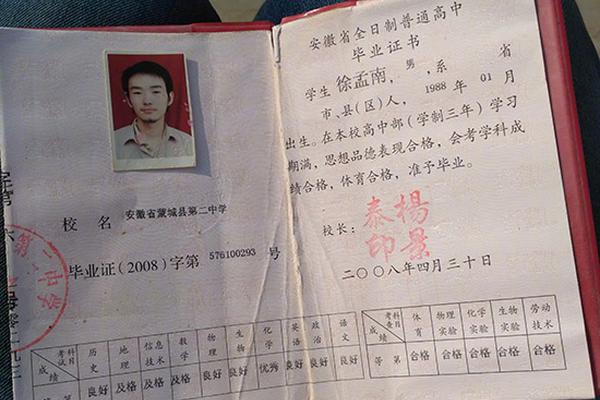 校 名 安徽省蒙城县第二中学
毕业证(2008)字第 576100293 号
第二中学
考试科目 历史 地理 信息技术 数学 物理 生物 化学 英语 政治 语文
成绩 良好 及格 及格 及格 良好 良好 优秀 良好 良好 良好
安徽省全日制普通高中
毕业证书
学生 徐孟南，男，系 省
市、县(区)人，1988 年 01 月
出生。在本校高中部(学制三年)学习
期满，思想品德表现合格，会考学科成
绩合格，体育合格，准予毕业。
校长：
楊景
泰印
二〇〇八年四月三十日
考查科目 体育 物理实验 化学实验 生物实验 劳动技术
成绩 等第 合格 合格 合格 合格 合格